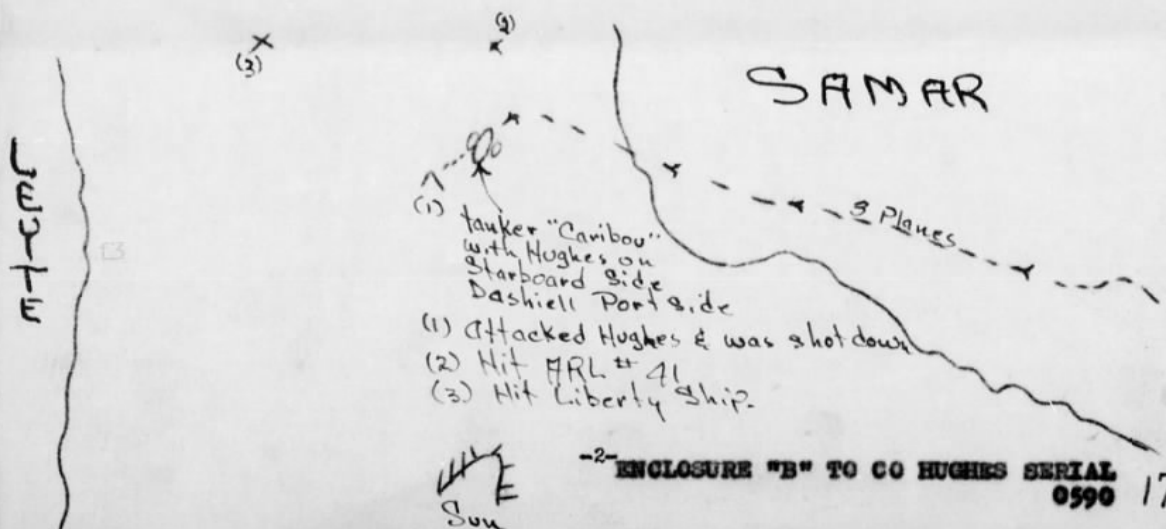 (3)
SAMAR
LEYTE
3 Planes
(1)
tanker "Caribou"
with Hughes on
Starboard Side
Dashiell Port side
(1) Attacked Hughes & was shot down
(2) Hit ARL # 41
(3) Hit Liberty Ship.
Sun
-2-
ENCLOSURE "B" TO CO HUGHES SERIAL
0590
17